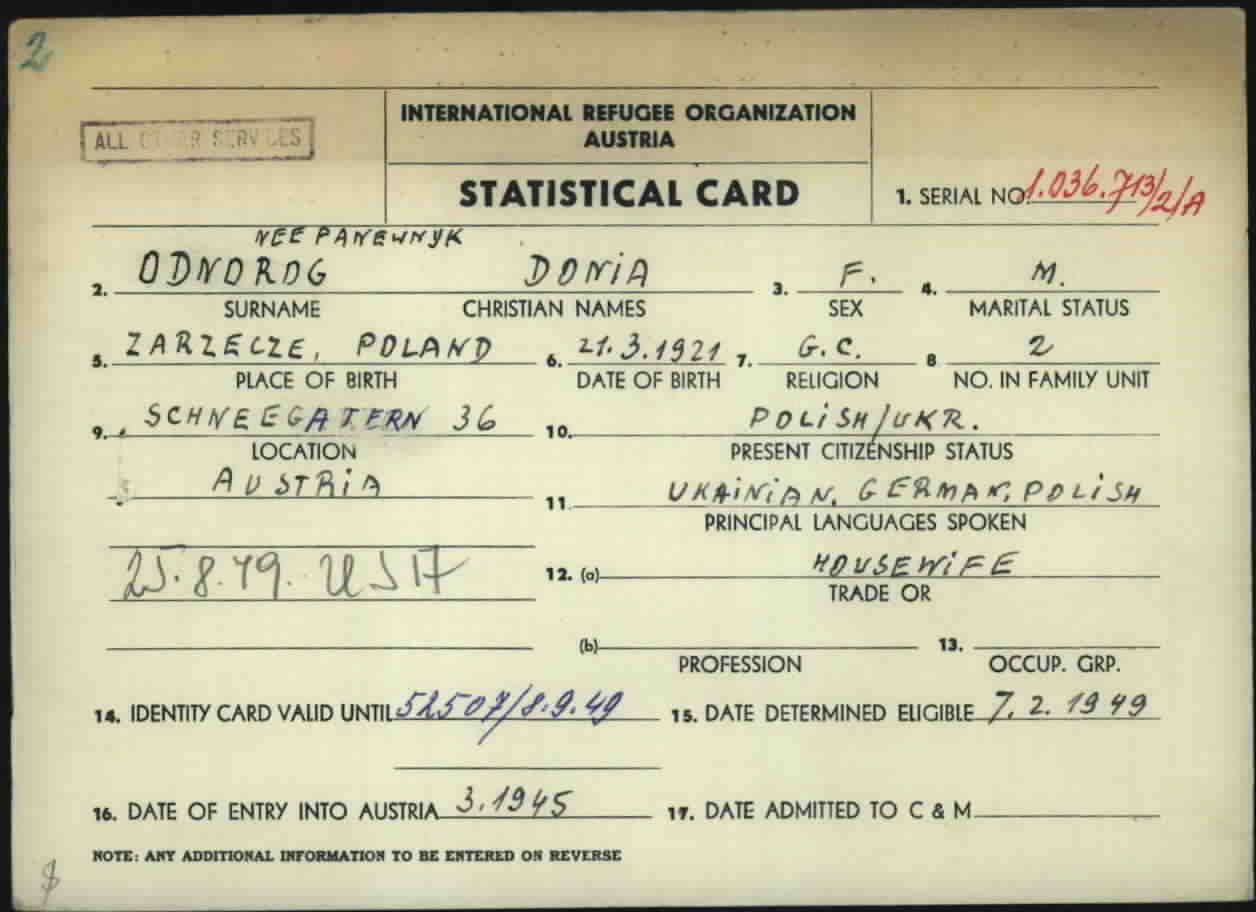 2
ALL OTHER SERVICES
INTERNATIONAL REFUGEE ORGANIZATION
AUSTRIA
STATISTICAL CARD
1. SERIAL NO. 1.036.713/2/A
NEE PANEWNYK
2. ODNOROG DONIA
SURNAME CHRISTIAN NAMES
3. F.
SEX
4. M.
MARITAL STATUS
5. ZARZECZE, POLAND
PLACE OF BIRTH
6. 21.3.1921
DATE OF BIRTH
7. G.C.
RELIGION
8 2
NO. IN FAMILY UNIT
9. SCHNEEGATERN 36
LOCATION
AUSTRIA
10. POLISH/UKR.
PRESENT CITIZENSHIP STATUS
11. UKAINIAN, GERMAN, POLISH
PRINCIPAL LANGUAGES SPOKEN
25.8.49.
12. (a) HOUSEWIFE
TRADE OR
(b)
PROFESSION
13.
OCCUP. GRP.
14. IDENTITY CARD VALID UNTIL 52507/8.9.49
15. DATE DETERMINED ELIGIBLE 7.2.1949
16. DATE OF ENTRY INTO AUSTRIA 3.1945
17. DATE ADMITTED TO C & M
NOTE: ANY ADDITIONAL INFORMATION TO BE ENTERED ON REVERSE